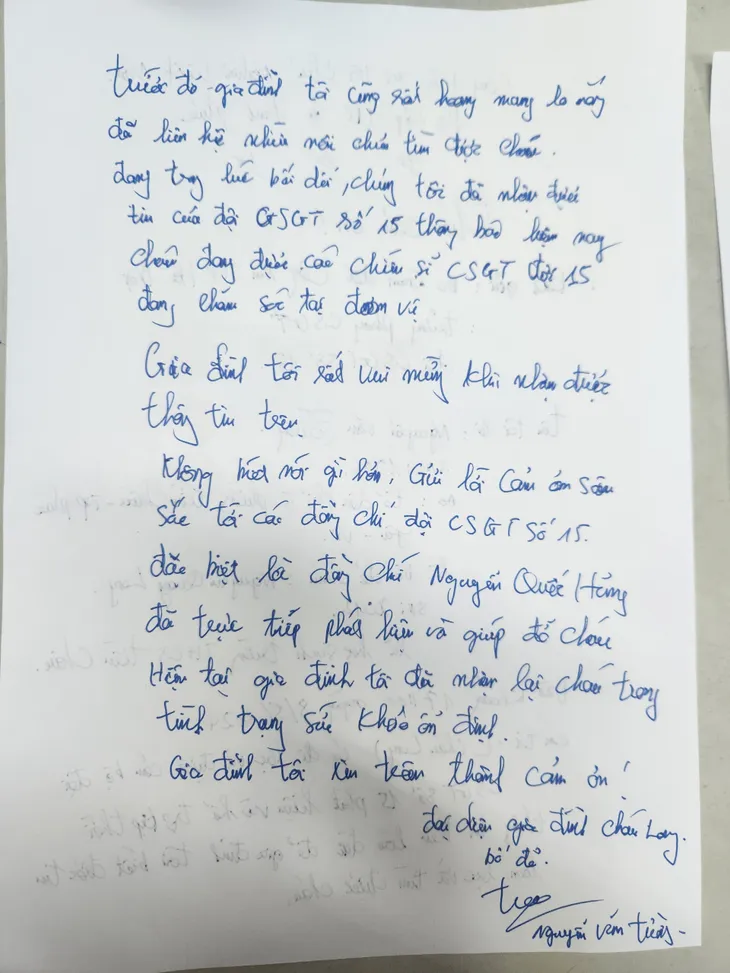 trước đó gia đình tôi cũng rất hoang mang lo lắng
đã liên hệ nhiều nơi chưa tìm được cháu.
đang trong lúc bối dối, chúng tôi đã nhận được
tin của đội CSGT số 15 thông báo hiện nay
cháu đang được các chiến sĩ CSGT đội 15
đang chăm sóc tại đơn vị
Gia đình tôi rất vui mừng khi nhận được
thông tin trên.
Không biết nói gì hơn, Gửi lời cảm ơn sâu
sắc tới các đồng chí đội CSGT Số 15.
đặc biệt là đồng chí Nguyễn Quốc Hùng
đã trực tiếp phát hiện và giúp đỡ cháu
Hiện tại gia đình tôi đã nhận lại cháu trong
tình trạng sức khoẻ ổn định.
Gia đình tôi xin trân thành cảm ơn!
đại diện gia đình cháu Long.
bố đẻ.
Nguyễn Văn